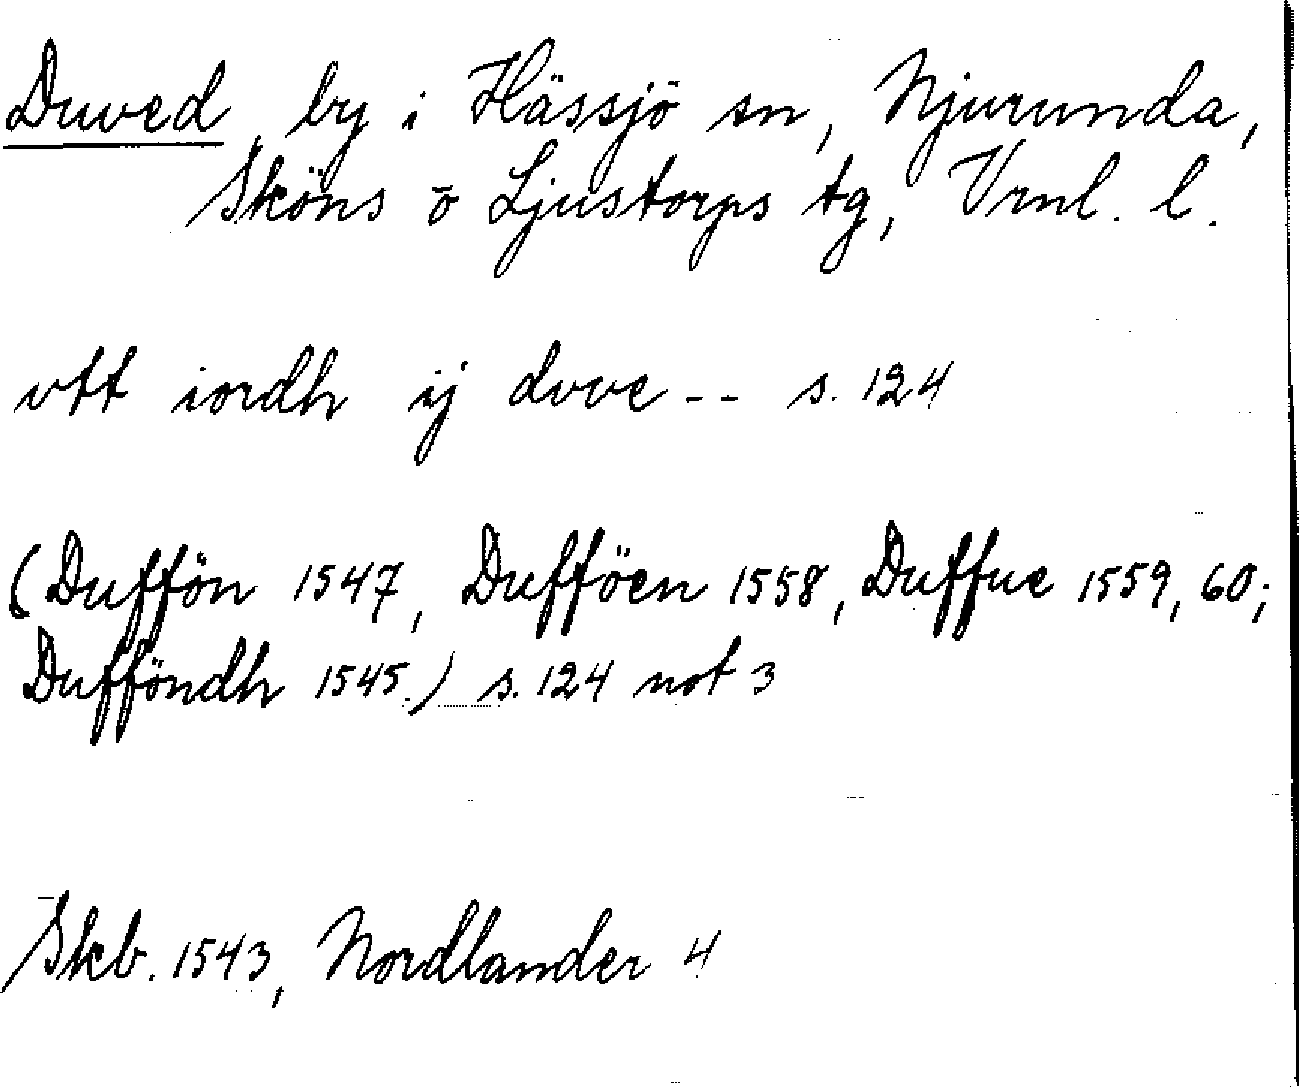 Duved, by i Hässjö sn, Njurunda,
Sköns o Ljustorps tg, Vrnl. l.
vtt iordh ij dvve -- s. 124
(Duffön 1547, Dufföen 1558, Duffue 1559, 60;
Dufföndh 1545.) s. 124 not 3
Skb. 1543, Nordlander 4